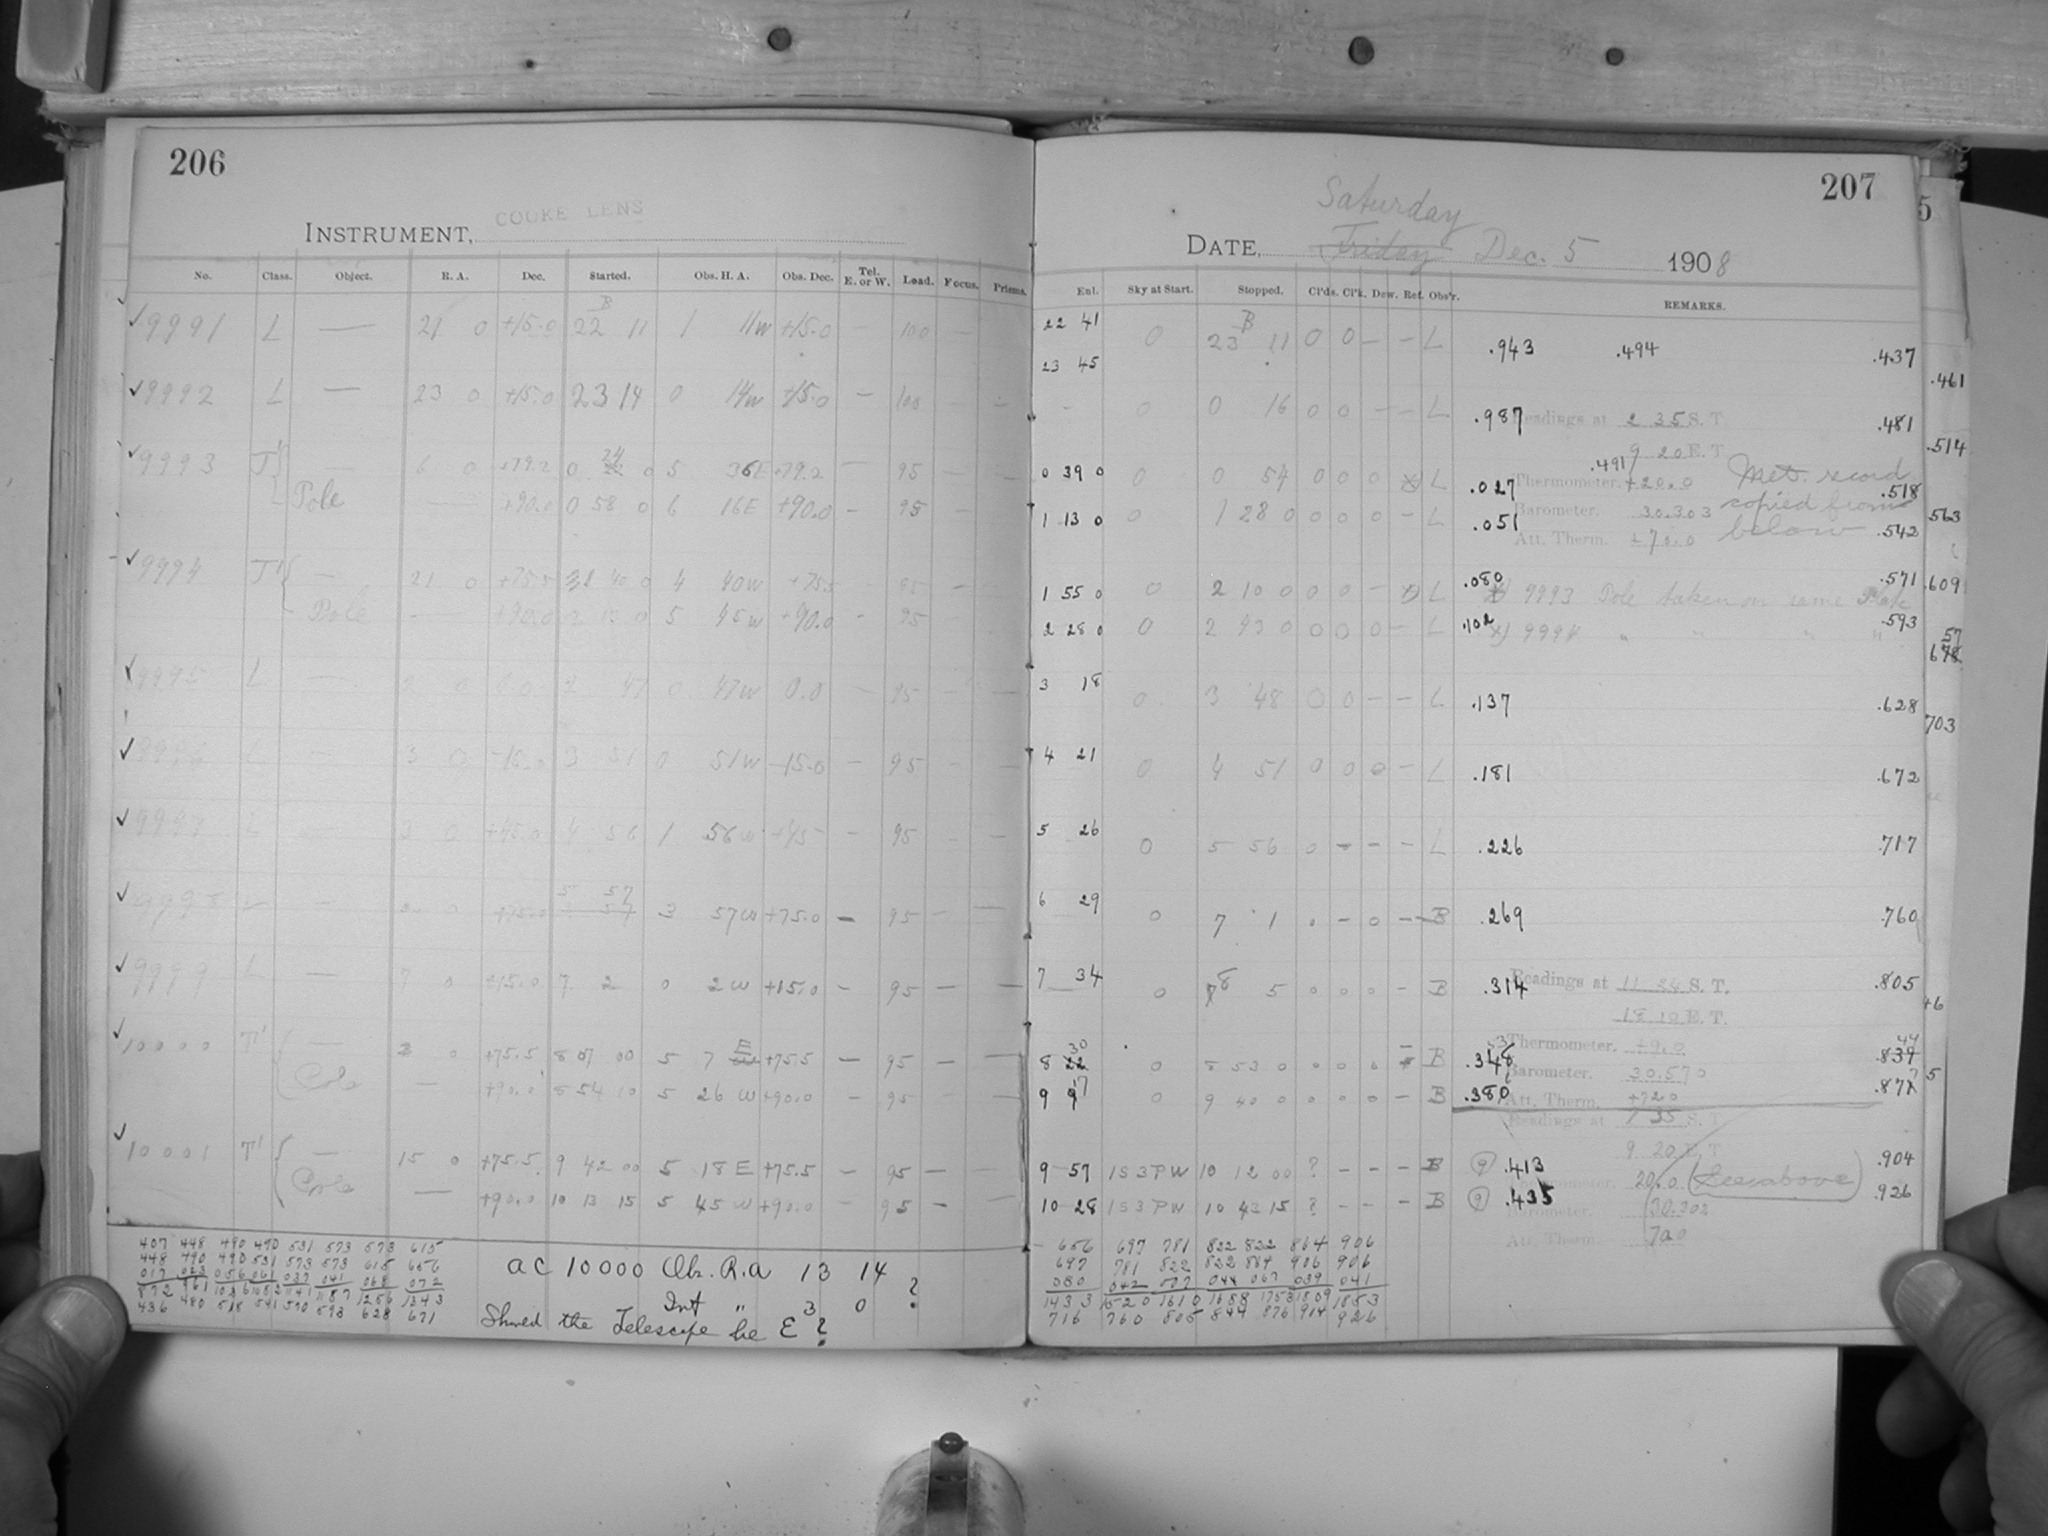 206
INSTRUMENT, COOKE LENS
No. Class. Object. R. A. Dec. Started. Obs. H. A. Obs. Dec. Tel. E. or W. Load. Focus. Prisms.
B
9991 L — 21 0 +15.0 22 11 1 11w +15.0 — 100 —
9992 L — 23 0 +15.0 23 14 0 14w +15.0 — 100 — —
24
9993 — 6 0 +79.2 0 22 0 5 36E +79.2 — 95 —
Pole — +90.0 0 58 0 6 16E +90.0 — 95 —
9994 — 21 0 +75.5 40 0 4 40w +75.5 — 95 —
Pole — +90.0 2 13 0 5 45w +90.0 — 95 —
9995 L — 2 0 0.0 2 47 0 47w 0.0 — 95 — —
9996 L — 3 0 -15.0 3 51 0 51w -15.0 — 95 — —
9997 L — 3 0 +45.0 4 56 1 56w +45 — 95 — —
5 57
— 3 57w +75.0 — 95 — —
9999 L — 7 0 +15.0 7 2 0 2w +15.0 — 95 — —
E
10000 T' — 0 +75.5 8 07 00 5 7 +75.5 — 95 —
Pole — +90.0 8 54 10 5 26 w +90.0 — 95 —
10001 T' — 15 0 +75.5 9 42 00 5 18 E +75.5 — 95 — —
Pole — +90.0 10 13 15 5 45 w +90.0 — 95 — —
407 448 490 490 531 573 573 615
448 490 490 531 573 573 615 656
017 023 056 061 037 041 068 072
872 961 1036 1082 1141 1187 1256 1343
436 480 518 541 570 593 628 671
AC 10000 Obs. R.A 13 14 ?
Int " 3 0
Should the Telescope be E ?
207
Saturday
DATE, Friday Dec. 5 1908
Enl. Sky at Start. Stopped. Cl'ds. Cl'k. Dew. Ref. Obs'r. REMARKS.
B
22 41 0 23 11 0 0 — — L .943 .494 .437
23 45
.461
0 0 16 0 0 — — L .987 Readings at 2 35 S. T. .481
.514
9 20 E. T.
.491
0 39 0 0 0 54 0 0 0 L .027 Thermometer. +20.0 Met. record .518
1 13 0 0 1 28 0 0 0 0 — L .051 Barometer. 30.303 copied from 563
Att. Therm. +70.0 below .542
1 55 0 0 2 10 0 0 0 — L .080 9993 Pole taken on same Plate .571 .609
2 28 0 0 2 43 0 0 0 0 — L .102 9994 " " " " .593
57
678
3 18 0 3 48 0 0 — — L .137 .628
703
4 21 0 4 51 0 0 0 — L .181 .672
5 26 0 5 56 0 — — — L .226 .717
6 29 0 7 1 0 — 0 — B .269 .760
7 34 0 8 5 0 0 0 — B .314 Readings at 11 34 S. T. .805
18 10 E. T.
30
8 22 0 8 53 0 0 0 0 B .348 Thermometer. +9.0 .839
Barometer. 30.570
9 17 0 9 40 0 0 0 0 — B .380 Att. Therm. +72.0 .877
Readings at 2 35 S. T.
9 20 E. T.
9 57 1S3PW 10 12 00 ? — — — B .413 Thermometer. 20.0 (See above) .904
10 28 1S3PW 10 43 15 ? — — — B .435 Barometer. 30.302 .926
Att. Therm. 70.0
656 697 781 822 822 864 906
697 781 822 822 864 906 906
080 042 007 044 067 039 041
1433 1520 1610 1688 1753 1809 1853
716 760 805 844 876 904 926